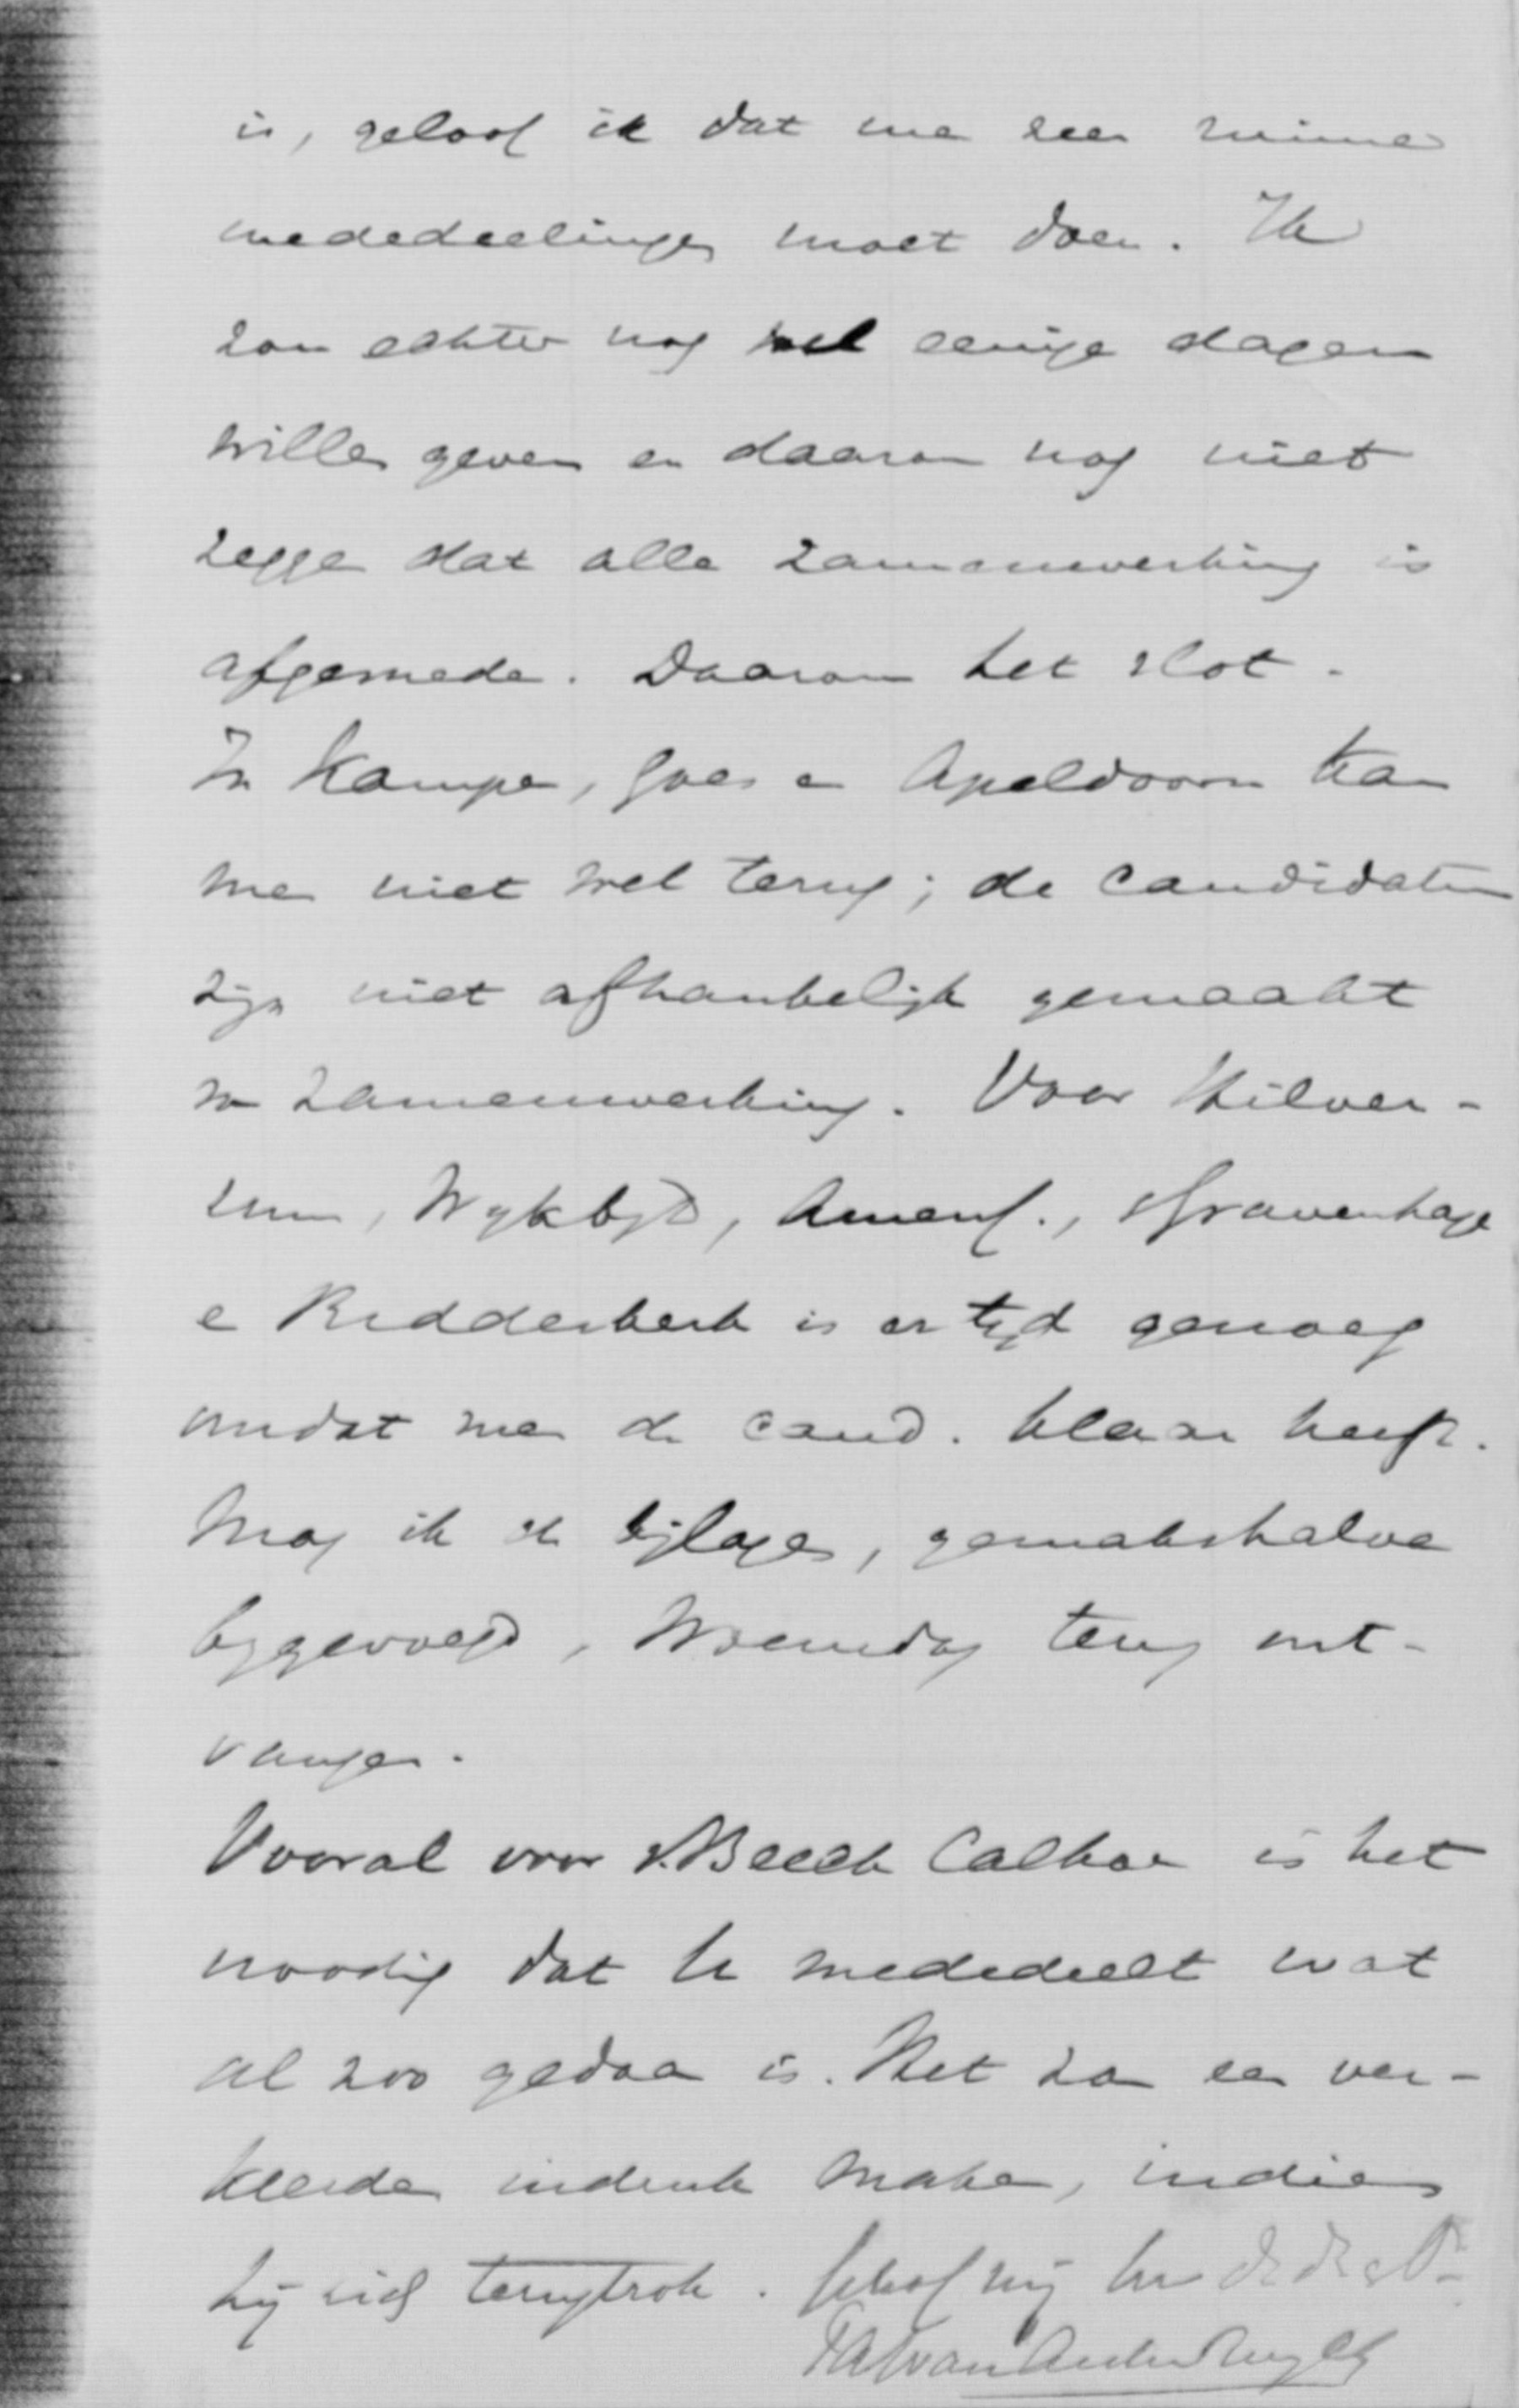 is, geloof ik dat men zeer ruime
mededeelingen moet doen. Ik
zou echter nog wel eenige dagen
willen geven en daarom nog niet
zeggen dat alle zamenwerking is
afgesneden. Daarom het slot.
In Kampen, Goes en Apeldoorn kan
men niet wel terug; de candidaten
zijn niet afhankelijk gemaakt
van zamenwerking. Voor Hilver-
sum, Wykbyd, Amersf., sGravenhage
en Ridderkerk is er tijd genoeg
omdat men de cand. klaar heeft.
Mag ik de bijlagen, gemakshalve
bygevoegd, Woensdag terug ont-
vangen.
Vooral voor v. Beeck Calkoen is het
noodig dat U mededeelt wat
al zoo gedaan is. Het zou een ver-
keerden indruk maken, indien
hij zich terugtrok. Geloof mij